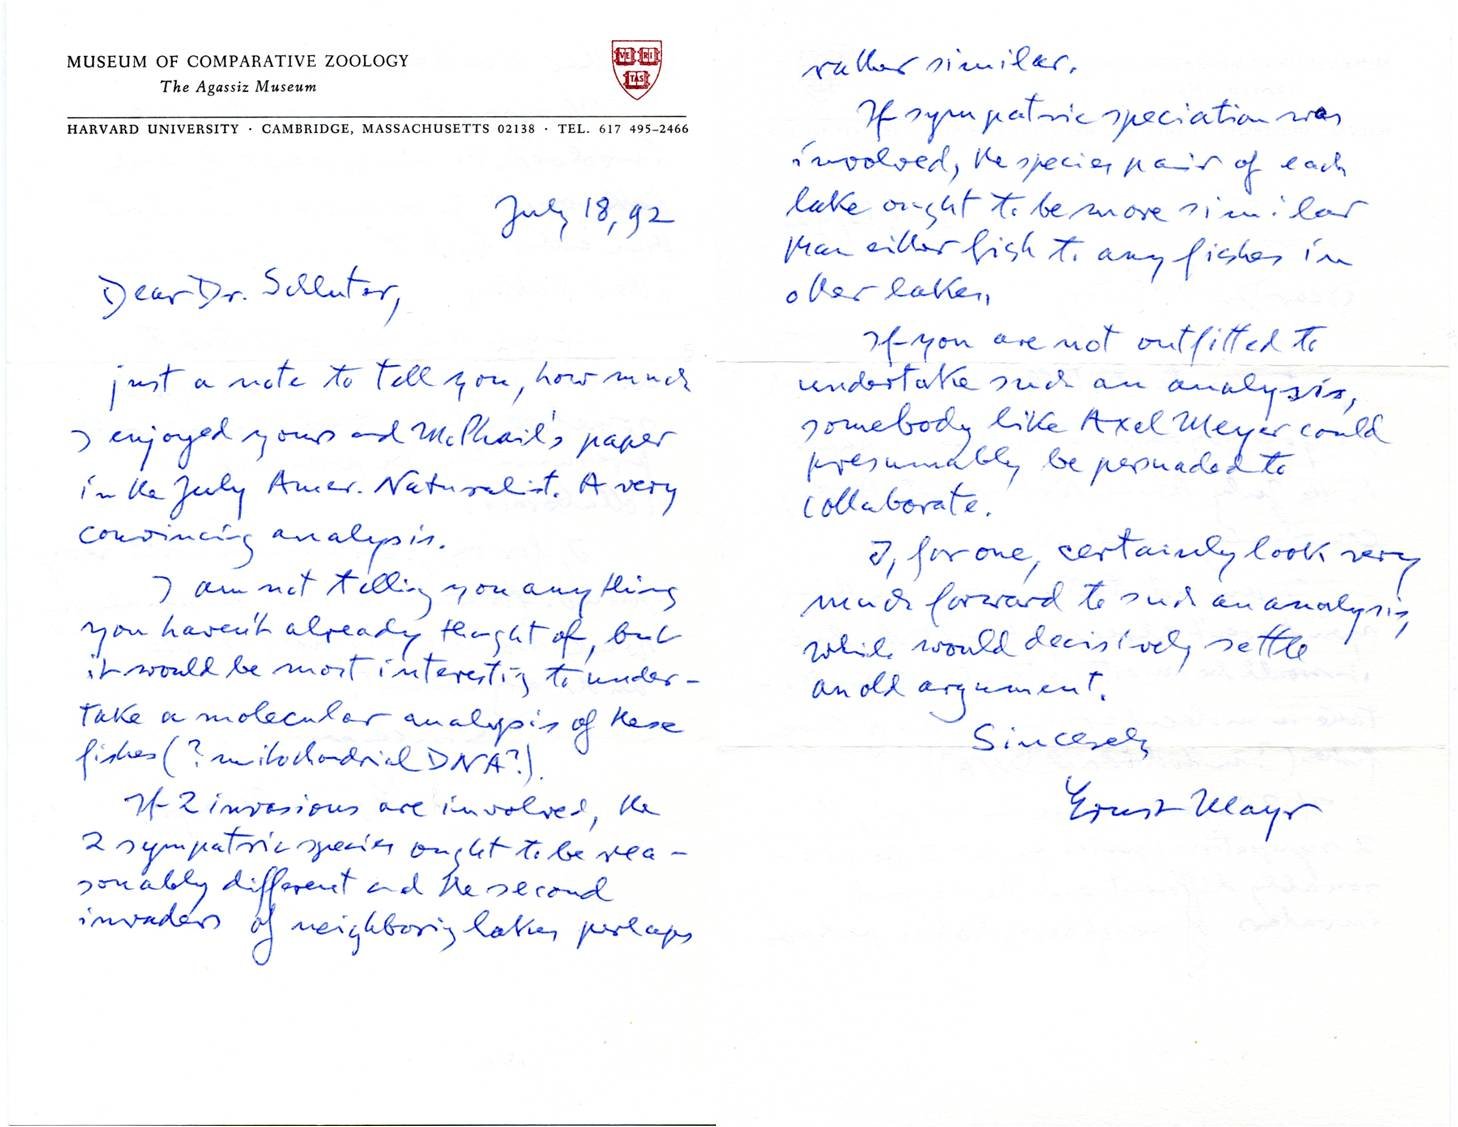 MUSEUM OF COMPARATIVE ZOOLOGY
The Agassiz Museum
VE RI
TAS
HARVARD UNIVERSITY · CAMBRIDGE, MASSACHUSETTS 02138 · TEL. 617 495-2466
July 18, 92
Dear Dr. Schluter,
just a note to tell you, how much
I enjoyed yours and McPhail's paper
in the July Amer. Naturalist. A very
convincing analysis.
I am not telling you anything
you haven't already thought of, but
it would be most interesting to under-
take a molecular analysis of these
fishes (? mitochondrial DNA?).
If 2 invasions are involved, the
2 sympatric species ought to be rea-
sonably different and the second
invaders of neighboring lakes perhaps
rather similar.
If sympatric speciation was
involved, the species pair of each
lake ought to be more similar
than either fish to any fishes in
other lakes.
If you are not outfitted to
undertake such an analysis,
somebody like Axel Meyer could
presumably be persuaded to
collaborate.
I, for one, certainly look very
much forward to such an analysis,
which would decisively settle
an old argument.
Sincerely
Ernst Mayr